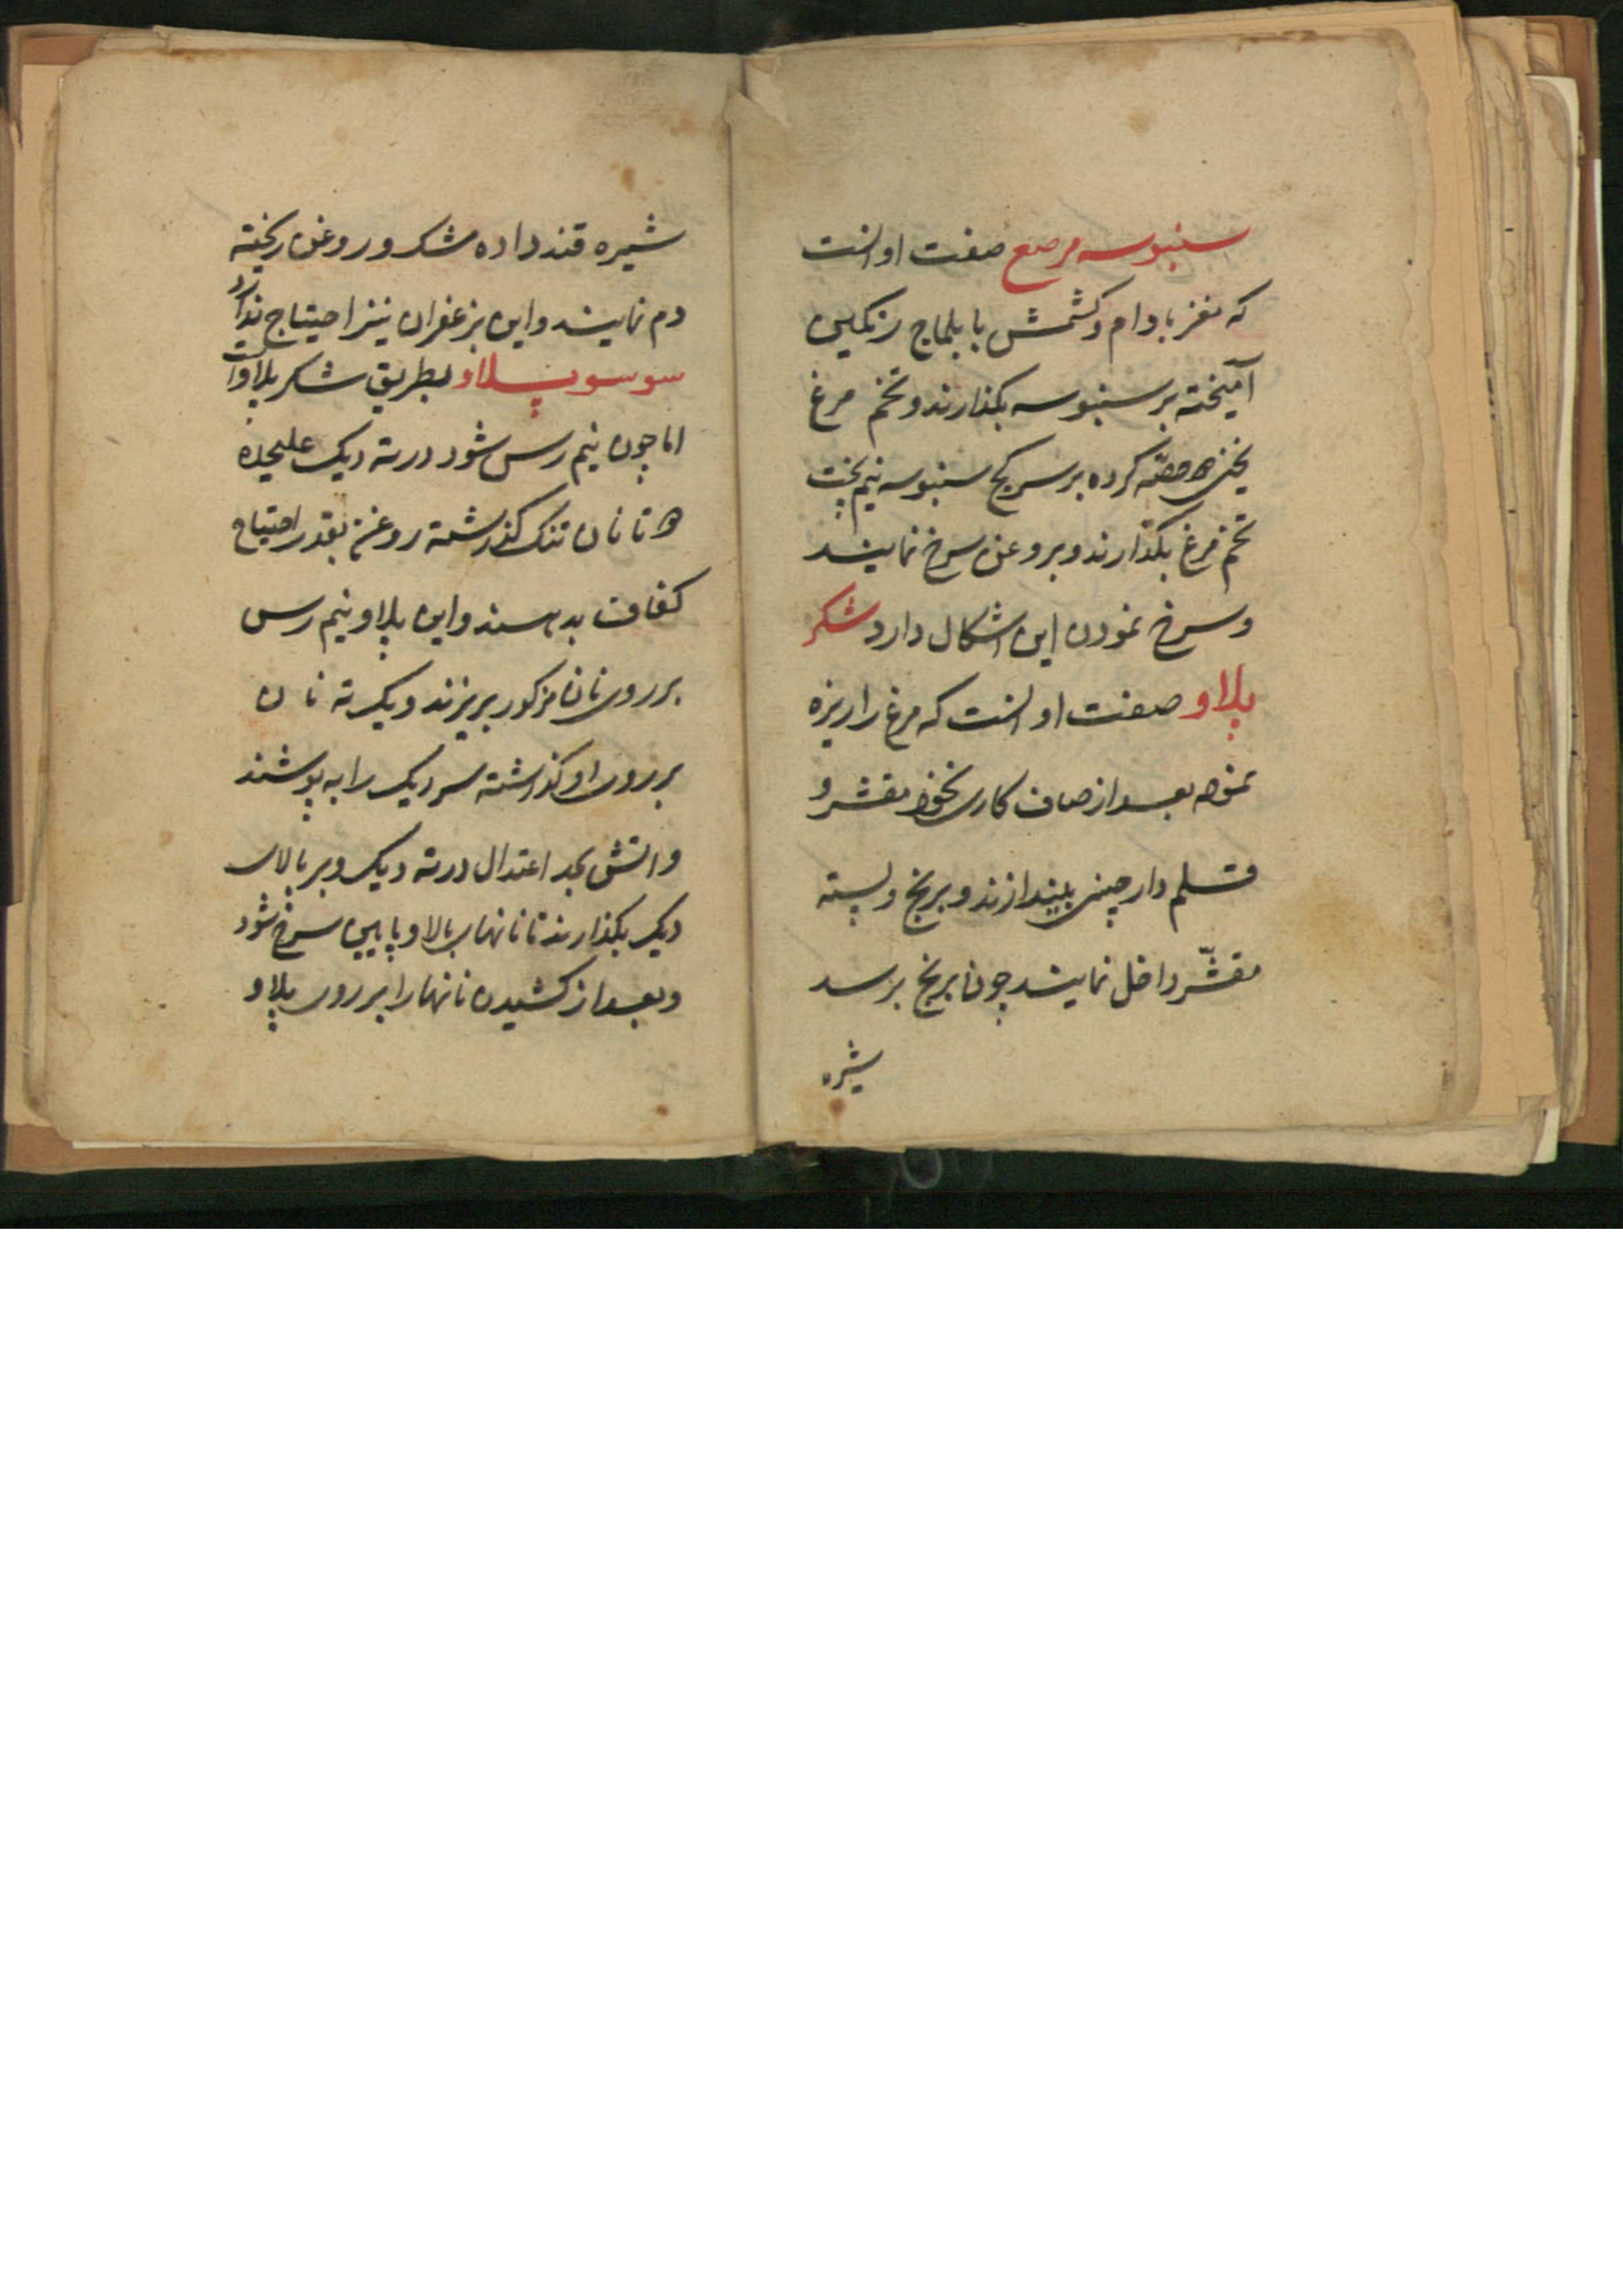 سنبوسه مرصع صفت او انست
که مغز بادام و کشمش با بلماج رنکین
آمیخته بر سنبوسه بکذارند و تخم مرغ
یخنی حصّه کرده بر سر کج سنبوسه نیم پخت
تخم مرغ بکذارند و بروغن سرخ نمایند
و سرخ نمودن این اشکال دارد شکر
پلاو صفت او انست که مرغ را ریزه
نموده بعد از صاف کاری نخود مقشر و
قلم دارچینی بیندازند و برنج و پسته
مقشّر داخل نمایند چون برنج برسد
شیره
شیره قند داده شکر و روغن ریخته
دم نمایند و این بزعفران نیز احتیاج ندارد
سوسو پلاو بطریق شکر پلاو است
اما چون نیم رس شود در ته دیک علیحده
تا نان تنک کذاشته روغن بقدر احتیاج
کفاف بدهند و این پلاو نیم رس
بر روی نان مزکور بریزند و یک ته نان
بر روی او کذاشته سر دیک را به پوشند
و اتش بحد اعتدال در ته دیک و بر بالای
دیک بکذارند تا نانهای بالا و پایین سرخ شود
و بعد از کشیدن نانها را بر روی پلاو